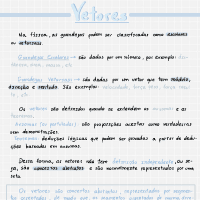 Vetores
Na física, as grandezas podem ser classificadas como escalares
ou vetoriais.
Grandezas Escalares → são dados por um número, por exemplo:
Grandezas Vetoriais → são dados por um vetor que tem módulo,
direção e sentido. São exemplos: velocidade, força
Os vetores são definidos quando se entendem os axiomas e os
teoremas.
Axiomas (ou postulados) são proposições aceitas como verdadeiras
sem demonstrações.
Teoremas: deduções lógicas que podem ser provadas a partir de dedu-
ções baseadas em axiomas.
Dessa forma, os vetores não tem definição independente, ou se-
ja, são conceitos abstratos e são normalmente representados por uma
seta.
Os vetores são elementos abstratos, representados por segmen-
tos orientados, de modo que os segmentos orientados de mesmo